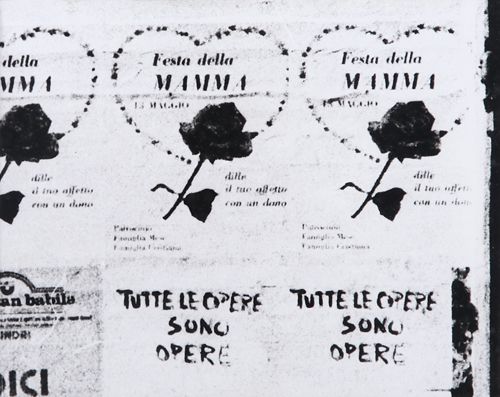 della
MAMMA
dille
il tuo affetto
con un dono
Festa della
MAMMA
13 MAGGIO
dille
il tuo affetto
con un dono
Patrocinio
Famiglia Mese
Famiglia Cristiana
Festa della
MAMMA
13 MAGGIO
dille
il tuo affetto
con un dono
Patrocinio
Famiglia Mese
Famiglia Cristiana
an babila
INDRI
DICI
TUTTE LE OPERE
SONO
OPERE
TUTTE LE OPERE
SONO
OPERE